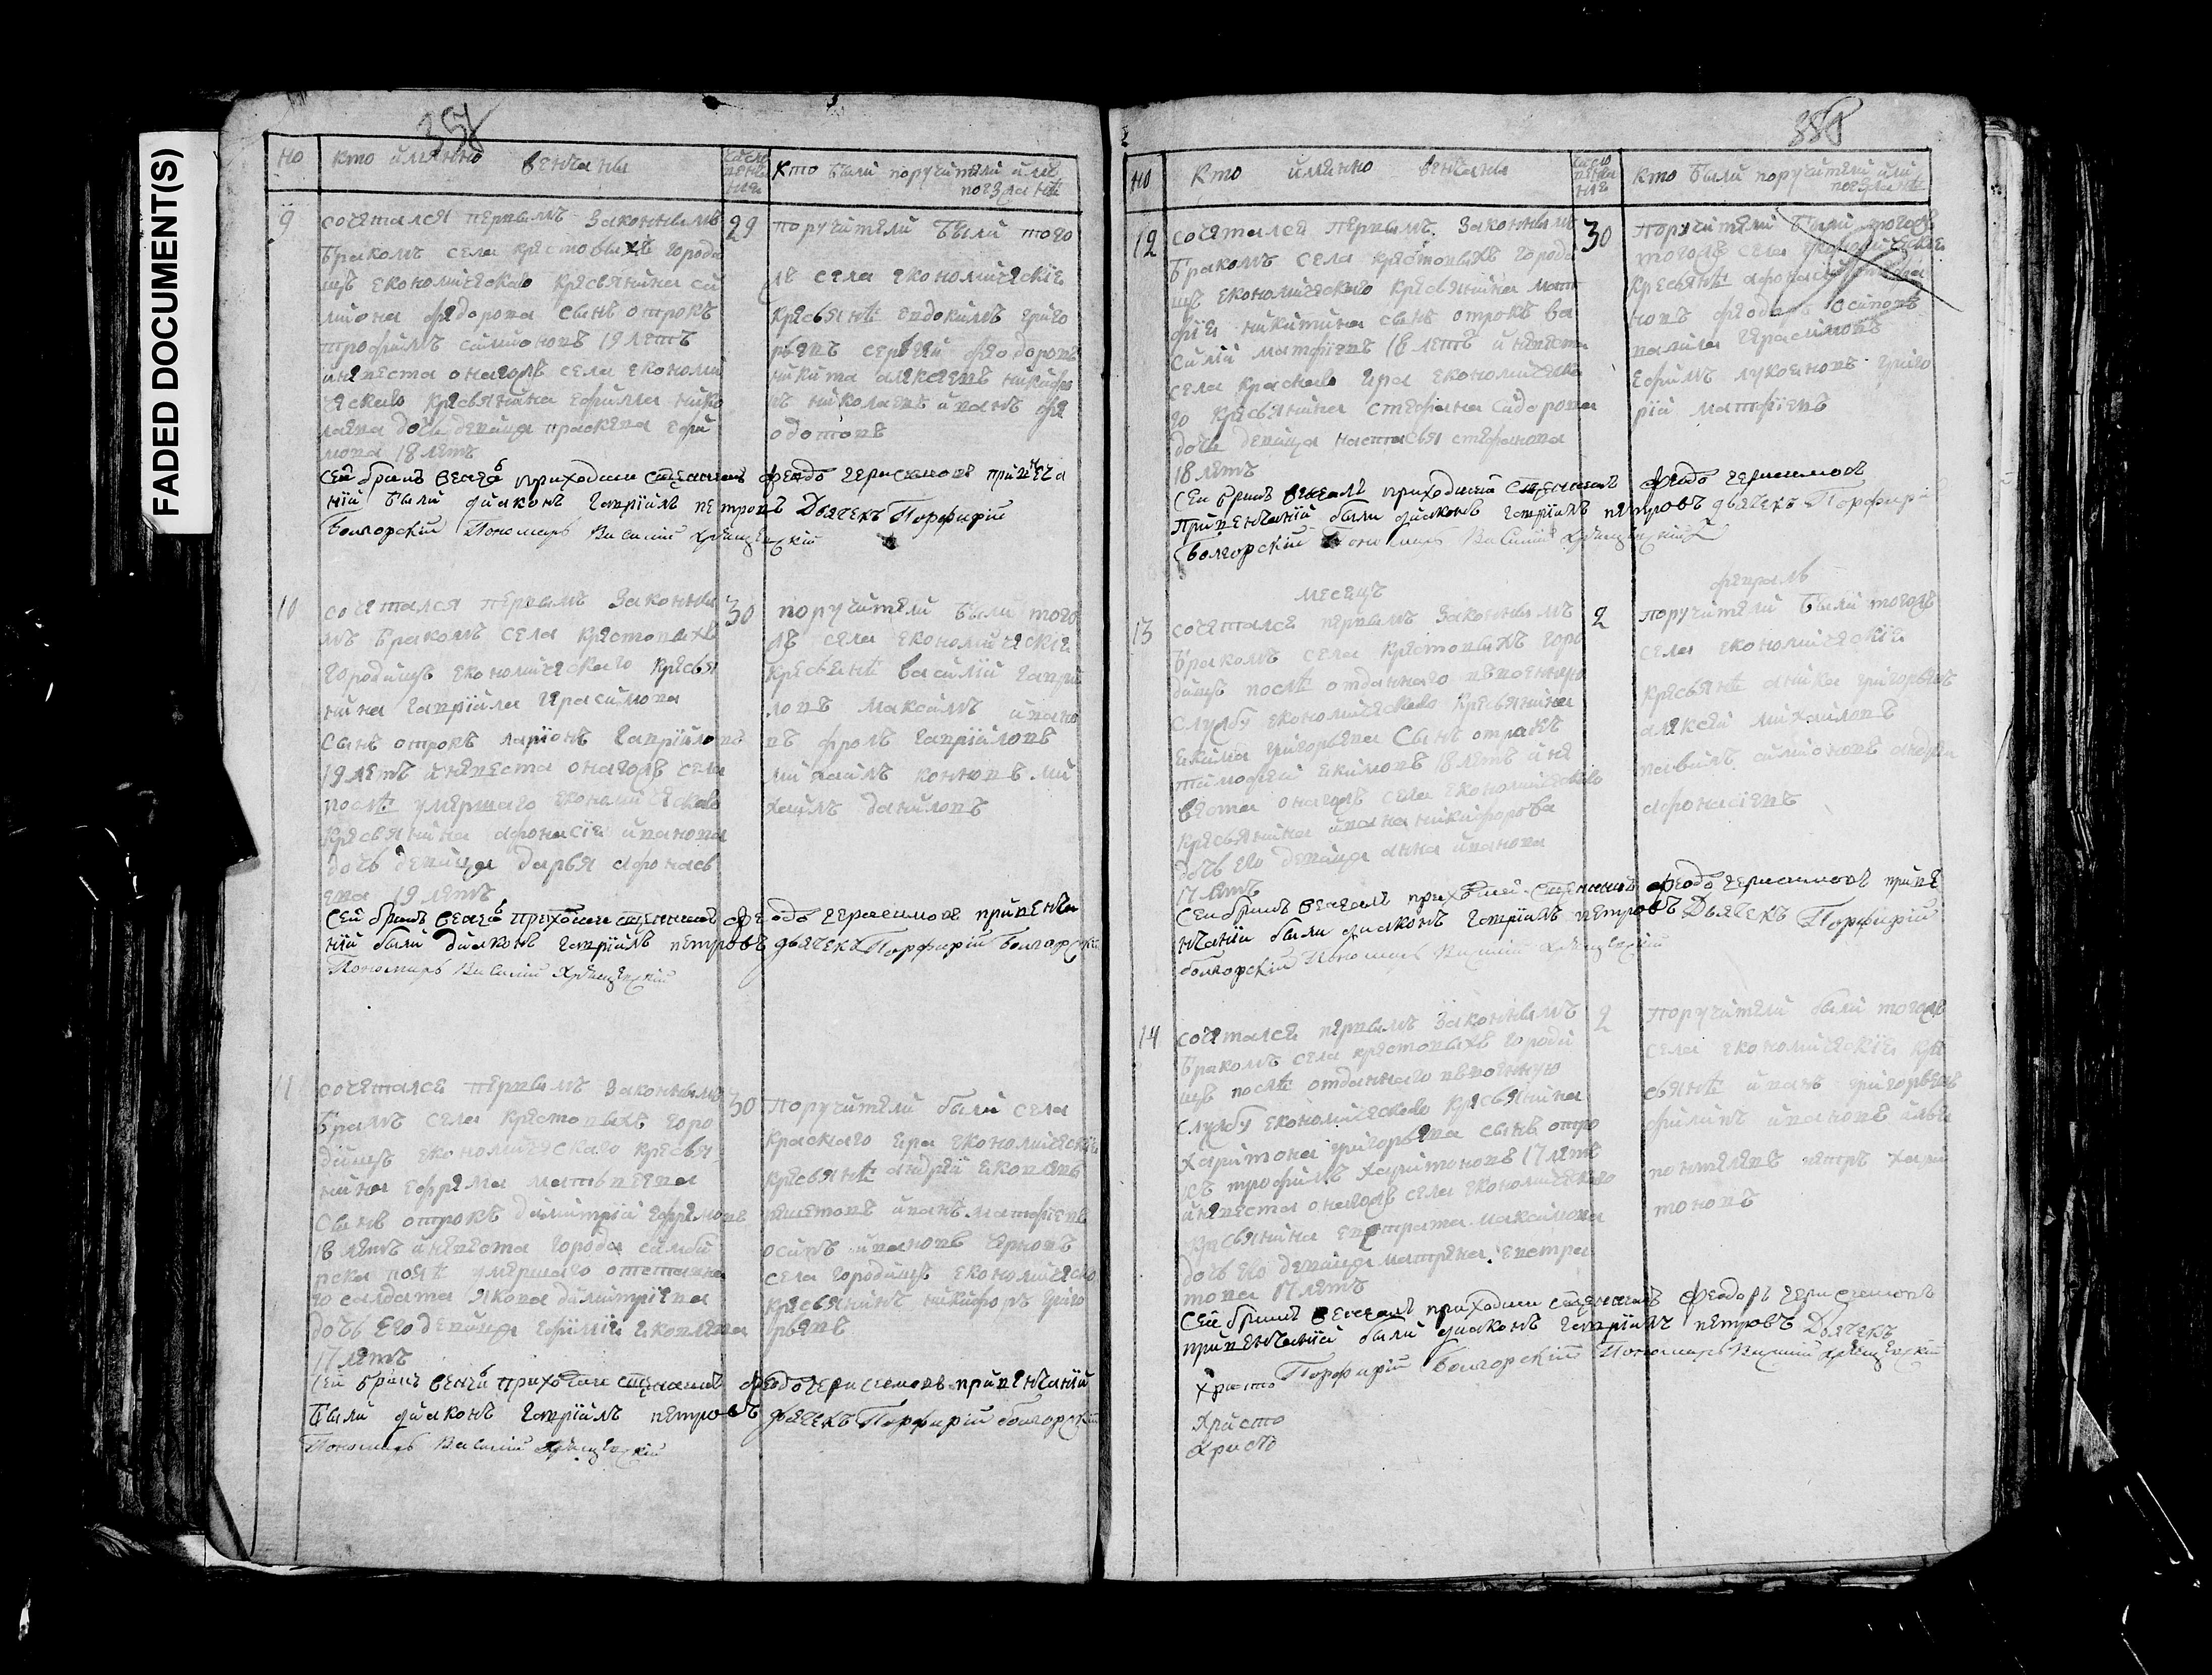 FADED DOCUMENT(S)
но
кто имянно венчаны
число венчания
кто были поручители или поезжане
9
сочетался первымъ законнымъ
бракомъ села крестовыхъ городи
щъ економическаго крестьянина си
миона федорова сынъ отрокъ
трофимъ симионовъ 19 летъ
и невеста онагожъ села економи
ческаго крестьянина ефима нико
лаева дочь девица праскева ефи
мова 18 летъ
29
поручители были того
жъ села економические
крестьянѣ евдокимъ григо
рьевъ сергѣй феодоровъ
никита алексеевъ никифо
ръ николаевъ иванъ фе
одотовъ
Сей бракъ венчалъ приходский священникъ феодоръ герасимовъ при венча
нiи были дiаконъ гаврiилъ петровъ Дьячекъ Порфирiй
болгорскiй Пономарь Василiй
10
сочетался первымъ законны
мъ бракомъ села крестовыхъ
городищъ економическаго крестья
нина гаврiила герасимова
сынъ отрокъ ларiонъ гаврiиловъ
19 летъ и невеста онагожъ села
послѣ умершаго економическаго
крестьянина афонасiя иванова
дочь девица дарья афонась
ева 19 летъ
30
поручители были того
жъ села економическiе
крестьянѣ василiй гаври
ловъ максимъ ивано
въ фролъ гаврiиловъ
михаилъ коновъ ми
хаилъ даниловъ
Сей бракъ венчалъ приходский священникъ феодоръ герасимовъ при венча
нiи были дiаконъ гаврiилъ петровъ дьячекъ Порфирiй болгорскiй
Пономарь Василiй
11
сочетался первымъ законнымъ
бракомъ села крестовыхъ горо
дищъ економическаго крестья
нина ефрема матвеева
сынъ отрокъ димитрiй ефремовъ
18 летъ и невеста города симби
рска послѣ умершаго отставна
го салдата якова димитрiева
дочь его девица ефимiя яковлева
17 летъ
30
поручители были села
краснаго яра економическiе
крестьянѣ андрей яковлевъ
иванъ матфiевъ
осипъ ивановъ
села городищъ економическо
крестьянинъ никифоръ григо
рьевъ
Сей бракъ венчалъ приходский священникъ феодоръ герасимовъ при венчанiи
были дiаконъ гаврiилъ петровъ дьячекъ Порфирiй болгорскiй
Пономарь Василiй
но
кто имянно венчаны
число венчания
кто были поручители или поезжанѣ
12
сочетался первымъ законнымъ
бракомъ села крестовыхъ городи
щъ економическаго крестьянина мат
фiя никитина сынъ отрокъ ва
силiй матфiевъ 18 летъ и невеста
села краснаго яра економическа
го крестьянина стефана сидорова
дочь девица настасья стефанова
18 летъ
30
поручители были
тогожъ села економическiе
крестьянѣ
феодоръ осиповъ
герасимовъ
ефимъ лукояновъ григо
рiй матфiевъ
Сей бракъ венчалъ приходский священникъ феодоръ герасимовъ
при венчанiи были дiаконъ гаврiилъ петровъ дьячекъ Порфирiй
болгорскiй Пономарь Василiй
месецъ февраль
13
сочетался первымъ законнымъ
бракомъ села крестовыхъ горо
дищъ послѣ отданнаго въ военную
службу економическаго крестьянина
якима григорьева сынъ отрокъ
тимофей якимовъ 18 летъ и не
веста онагожъ села економическаго
крестьянина ивана никифорова
дочь его девица анна иванова
17 летъ
2
поручители были тогожъ
села економическiе
крестьянѣ аника григорьевъ
алексей михаиловъ
симионовъ андрей
афонасiевъ
Сей бракъ венчалъ приходский священникъ феодоръ герасимовъ при ве
нчанiи были дiаконъ гаврiилъ петровъ Дьячекъ Порфирiй
болгорскiй Пономарь Василiй
14
сочетался первымъ законнымъ
бракомъ села крестовыхъ городи
щъ послѣ отданнаго въ военную
службу економическаго крестьянина
харитона григорьева сынъ отро
къ трофимъ харитоновъ 17 летъ
и невеста онагожъ села економическаго
крестьянина евстрата максимова
дочь его девица матрена евстра
това 17 летъ
2
поручители были тогожъ
села економическiе кре
стьянѣ иванъ григорьевъ
филипъ ивановъ илья
петръ хари
тоновъ
Сей бракъ венчалъ приходский священникъ феодоръ герасимовъ
при венчанiи были дiаконъ гаврiилъ петровъ Дьячекъ
Порфирiй болгорскiй Пономарь Василiй
христо
христо
христо